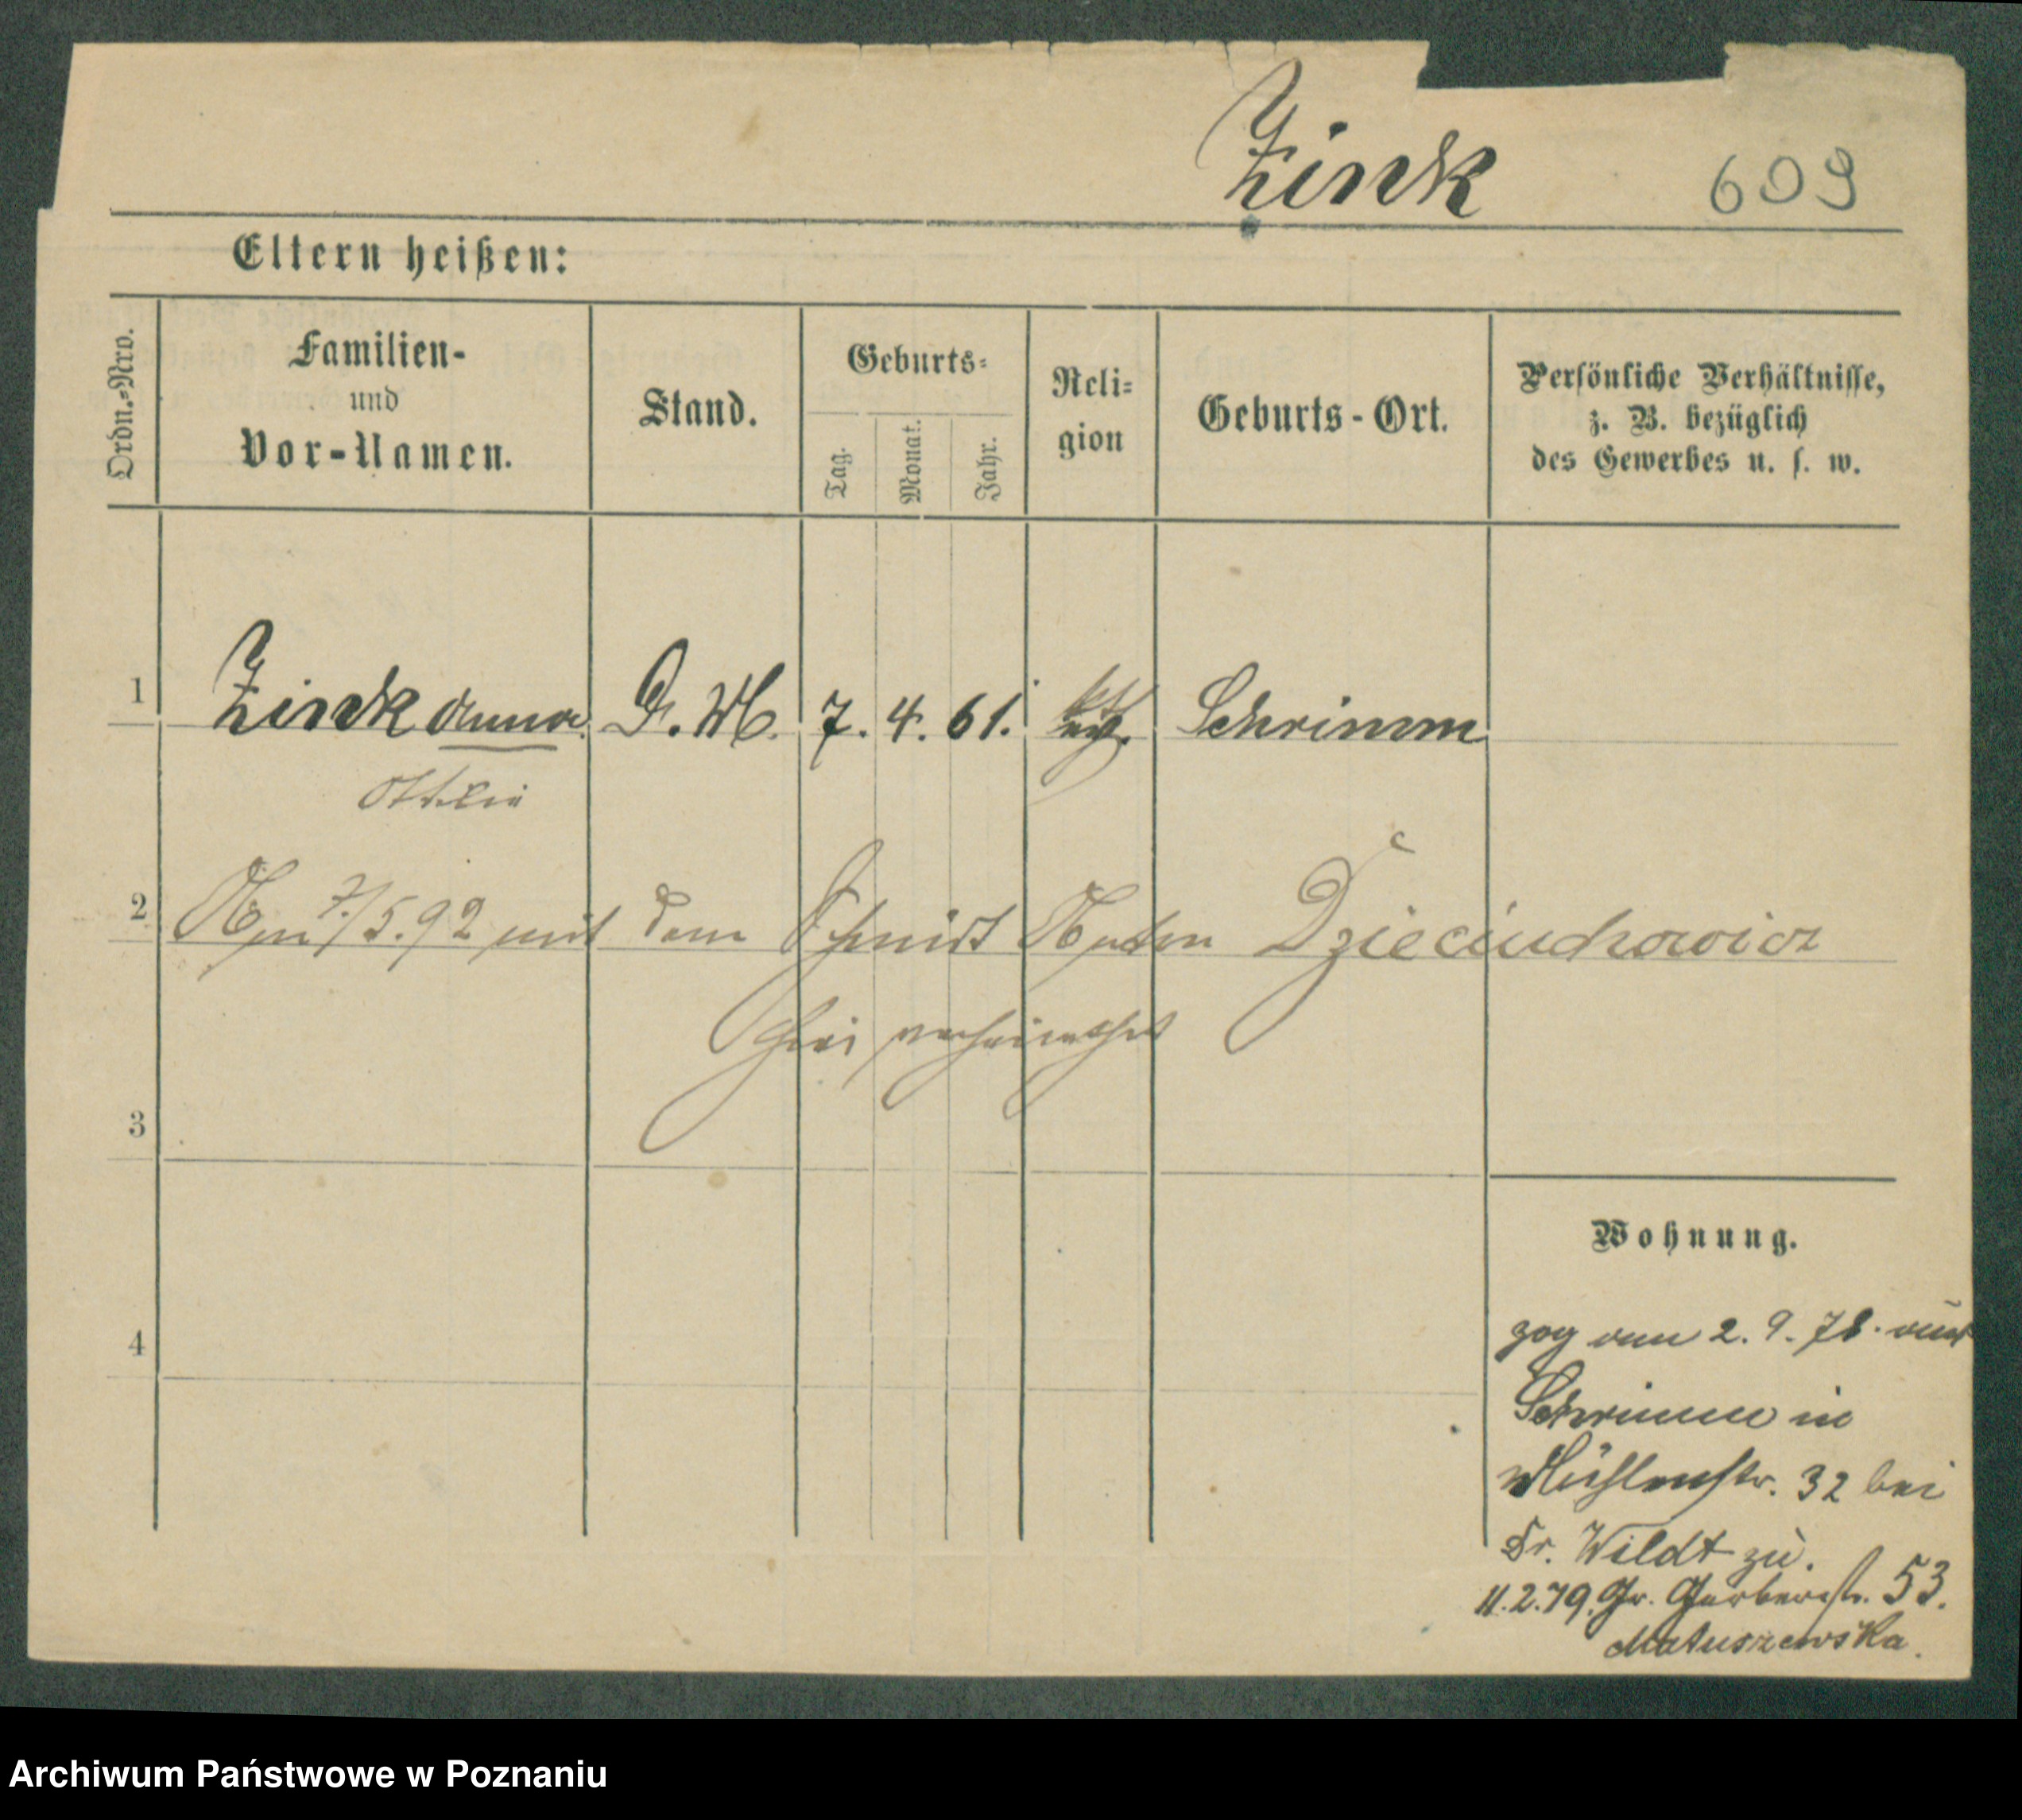 Zink 609
Eltern heißen:
Ordn.-Nro.
Familien-
und
Vor-Namen.
Stand.
Geburts-
Tag.
Monat.
Jahr.
Reli-
gion
Geburts-Ort.
Persönliche Verhältnisse,
z. B. bezüglich
des Gewerbes u. s. w.
1 Zink Anna D. M. 7. 4. 61. Schrimm
Ottilie
2 Am 7./5.92 mit dem Schmidt Anton Dzieciuchowicz
hier verheirathet
3
Wohnung.
4
zog am 2. 9. 78. aus
Schrimm in
Mühlenstr. 32 bei
Dr. Wildt zu.
11.2.79. Gr. Gerberstr. 53.
Matuszewska.
Archiwum Państwowe w Poznaniu